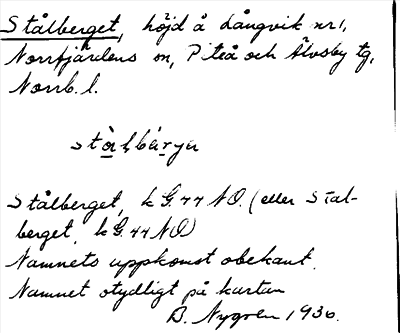 Stålberget, höjd å Långvik nr 1,
Norrfjärdens sn, Piteå och Älvsby tg,
Norrb. l.
stàlbárjə
Stålberget, kG.44 NO. (eller Stal-
berget, kG.44 NO)
Namnets uppkomst obekant.
Namnet otydligt på kartan
B. Nygren 1936.